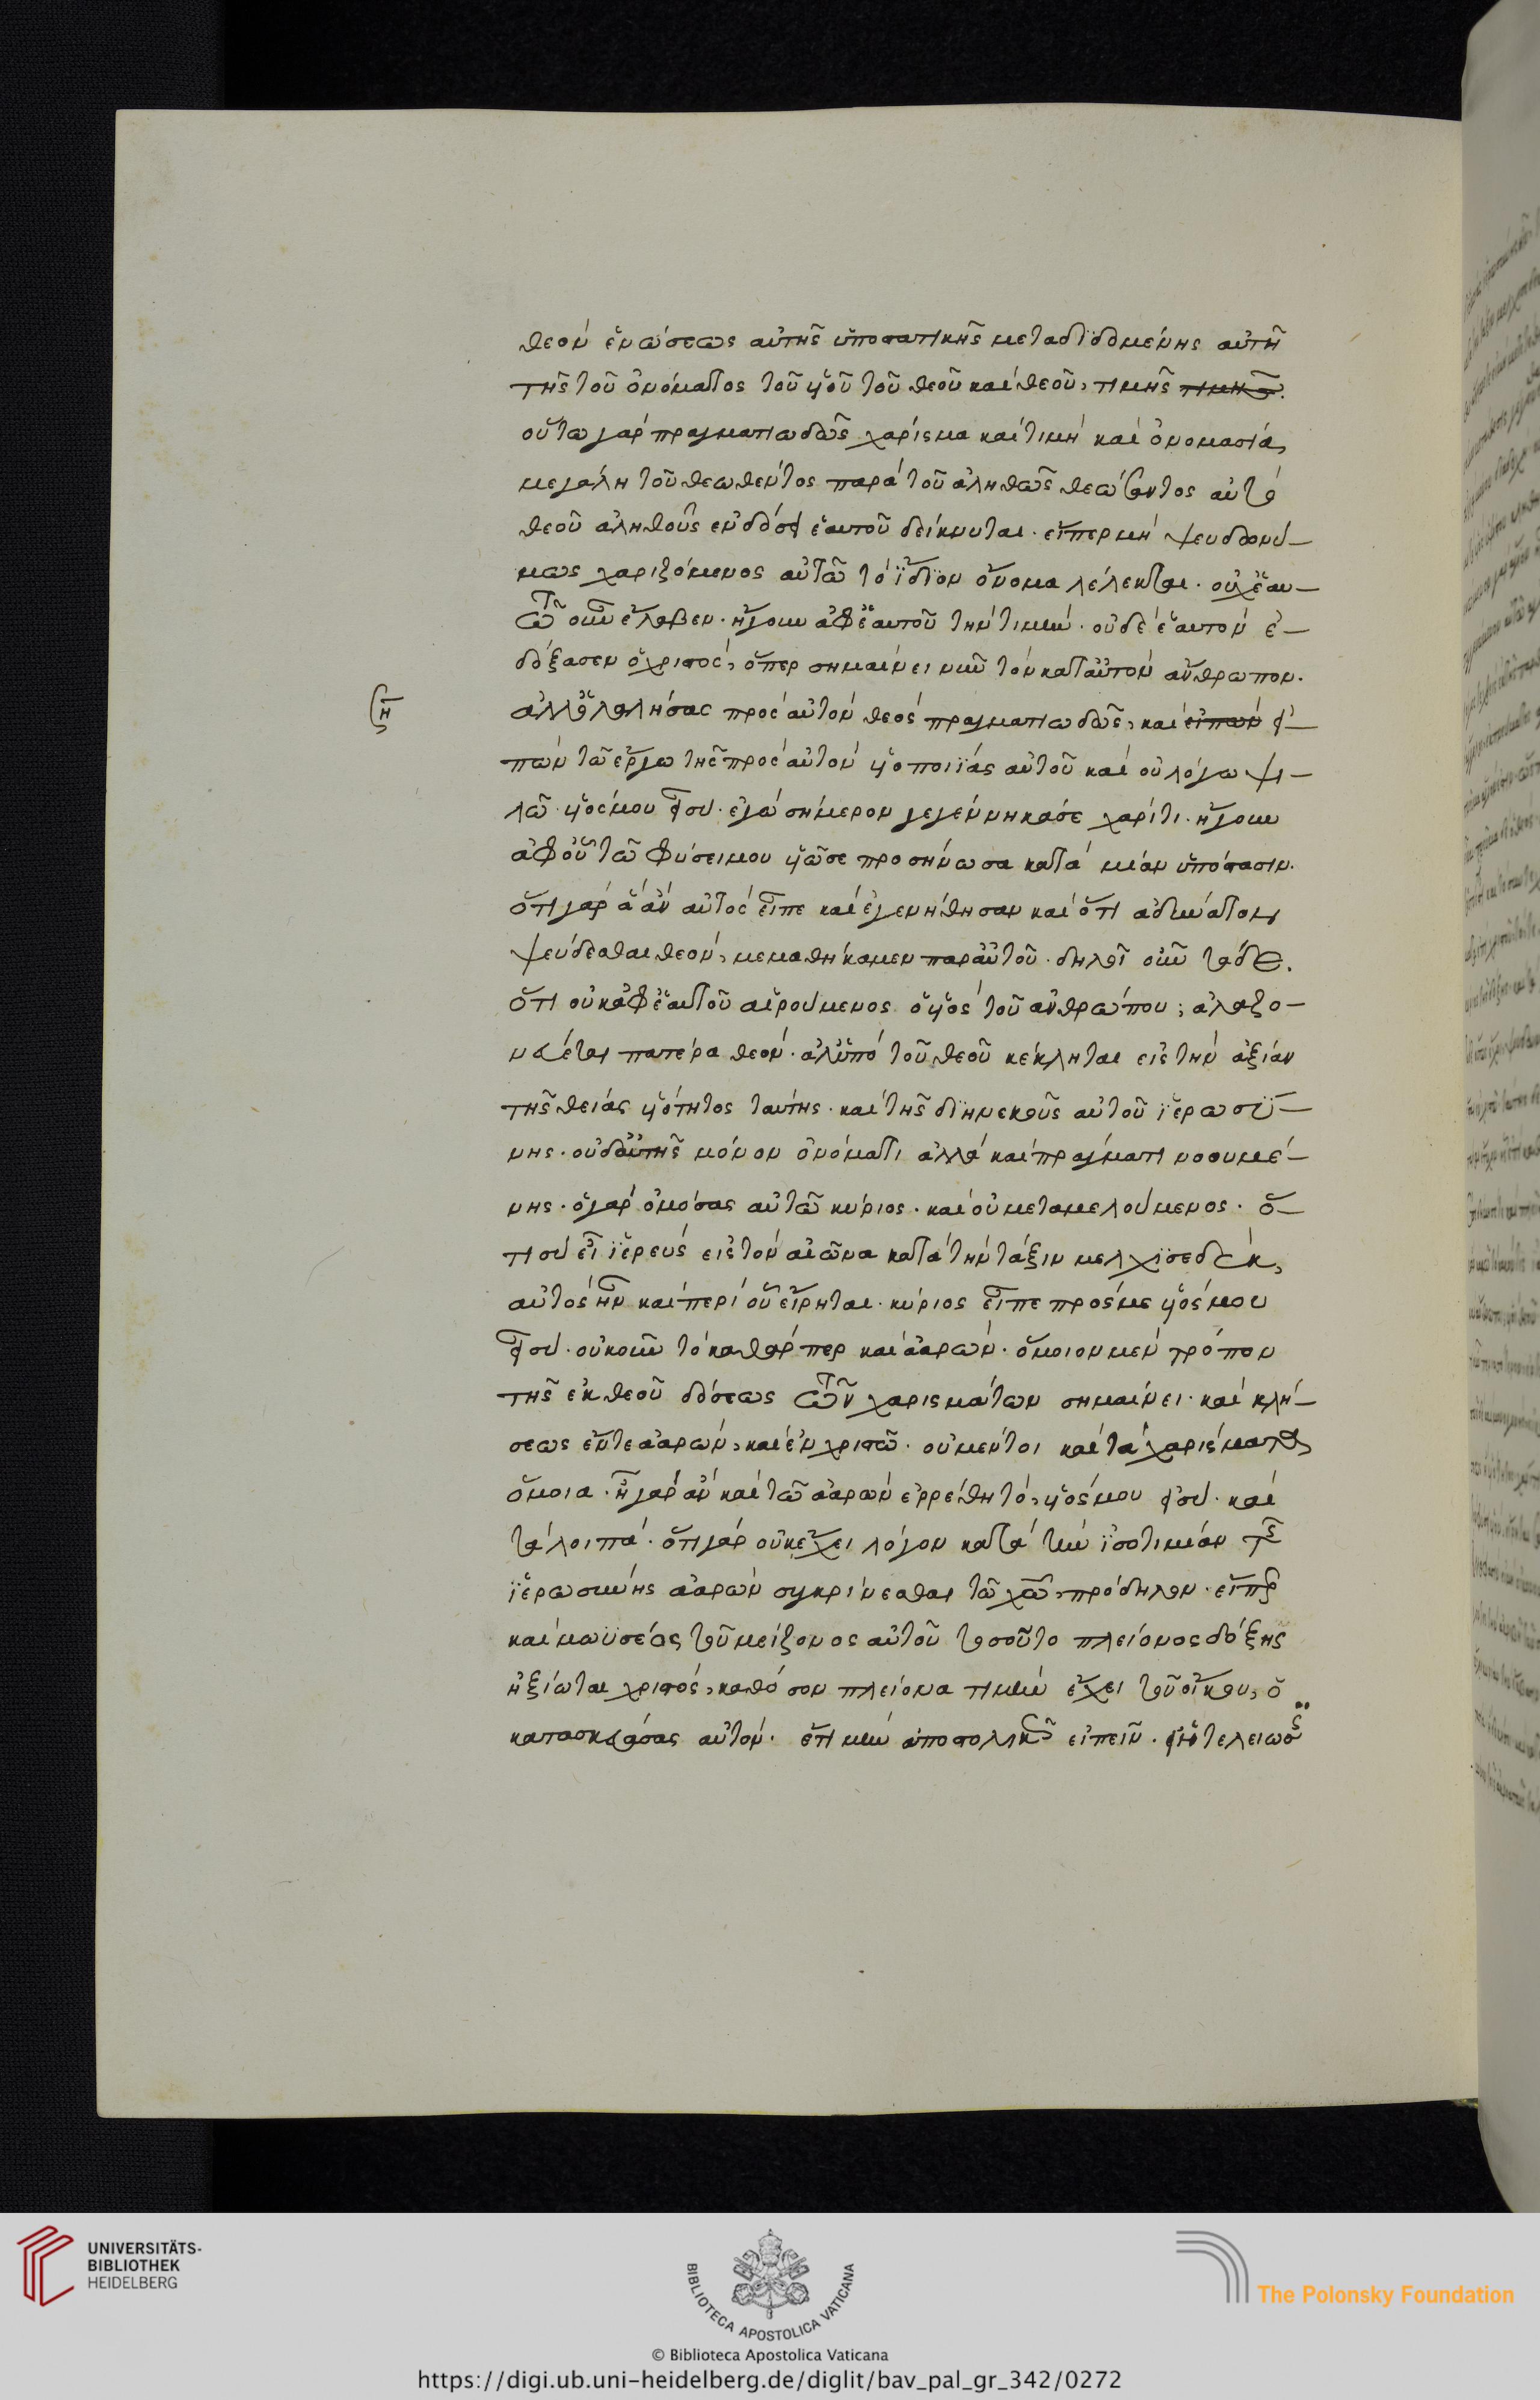 θεὸν ἑνώσεως αὐτῆς ὑποστατικῆς μεταδιδομένης αὐτῇ
τῆς τοῦ ὀνόματος τοῦ υἱοῦ τοῦ θεοῦ καὶ θεοῦ, τιμῆς
οὕτω γὰρ πραγματιωδῶς χάρισμα καὶ τιμὴ καὶ ὀνομασία
μεγάλη τοῦ θεωθέντος παρὰ τοῦ ἀληθῶς θεώσαντος αὐτὸ
θεοῦ ἀληθοῦς ἐν δόσει ἑαυτοῦ δείκνυται. εἴπερ μὴ ψευδωνύ-
μως χαριζόμενος αὐτῶ τὸ ἴδιον ὄνομα λέλεκται. οὐχ ἑαυ-
τῶ οὖν ἔλαβεν. ἤγουν ἀφ' ἑαυτοῦ τὴν τιμήν. οὐδὲ ἑαυτὸν ἐ-
δόξασεν ὁ χριστός, ὅπερ σημαίνει νῦν τὸν κατ' αὐτὸν ἄνθρωπον.
ἀλλ' ὁ λαλήσας πρὸς αὐτὸν θεὸς πραγματιωδῶς, καὶ εἰ-
πὼν τῶ ἔργω τῆς πρὸς αὐτὸν υἱοποιΐας αὐτοῦ καὶ οὐ λόγω ψι-
λῶ. υἱός μου εἶ σύ. ἐγὼ σήμερον γεγέννηκά σε χάριτι. ἤγουν
ἀφ' οὗ τῶ φύσει μου υἱῶ σε προσήνωσα κατὰ μίαν ὑπόστασιν.
ὅτι γὰρ ἃ ἂν αὐτὸς εἶπε καὶ ἐγενήθησαν καὶ ὅτι ἀδύνατον
ψεύδεσθαι θεόν, μεμαθήκαμεν παρ' αὐτοῦ. δηλοῖ οὖν τάδε.
ὅτι οὐκ ἀφ' ἑαυτοῦ αἱρούμενος ὁ υἱὸς τοῦ ἀνθρώπου, ἀλαζο-
νεύεται πατέρα θεόν. ἀλλ' ὑπὸ τοῦ θεοῦ κέκληται εἰς τὴν ἀξίαν
τῆς θείας υἱότητος ταύτης. καὶ τῆς διηνεκοῦς αὐτοῦ ἱερωσύ-
νης. οὐδ' αὐτῆς μόνον ὀνόματι ἀλλὰ καὶ πράγματι νοουμέ-
νης. ὁ γὰρ ὀμόσας αὐτῶ κύριος. καὶ οὐ μεταμελούμενος. ὅ-
τι σὺ εἶ ἱερεὺς εἰς τὸν αἰῶνα κατὰ τὴν τάξιν μελχισεδέκ,
αὐτὸς ἦν καὶ περὶ οὗ εἴρηται. κύριος εἶπε πρός με υἱός μου
εἶ σύ. οὐκοῦν τὸ καθάπερ καὶ ἀαρών. ὅμοιον μὲν τρόπον
τῆς ἐκ θεοῦ δόσεως τῶν χαρισμάτων σημαίνει. καὶ κλή-
σεως ἔν τε ἀαρών, καὶ ἐν χριστῶ. οὐ μέντοι καὶ τὰ χαρίσματα
ὅμοια. ἦ γὰρ ἂν καὶ τῶ ἀαρὼν ἐρρέθη τό, υἱός μου εἶ σύ. καὶ
τὰ λοιπά. ὅτι γὰρ οὐκ ἔχει λόγον κατὰ τὴν ἰσοτιμίαν τῆς
ἱερωσύνης ἀαρὼν συγκρίνεσθαι τῶ χῶ, πρόδηλον. εἴπερ
καὶ μωϋσέος τοῦ μείζονος αὐτοῦ τοσοῦτο πλείονος δόξης
ἠξίωται χριστός, καθόσον πλείονα τιμὴν ἔχει τοῦ οἴκου, ὁ
κατασκευάσας αὐτόν. ἔτι μὴν ἀποστολικῶς εἰπεῖν.
UNIVERSITÄTS-
BIBLIOTHEK
HEIDELBERG
BIBLIOTECA APOSTOLICA VATICANA
The Polonsky Foundation
© Biblioteca Apostolica Vaticana
https://digi.ub.uni-heidelberg.de/diglit/bav_pal_gr_342/0272